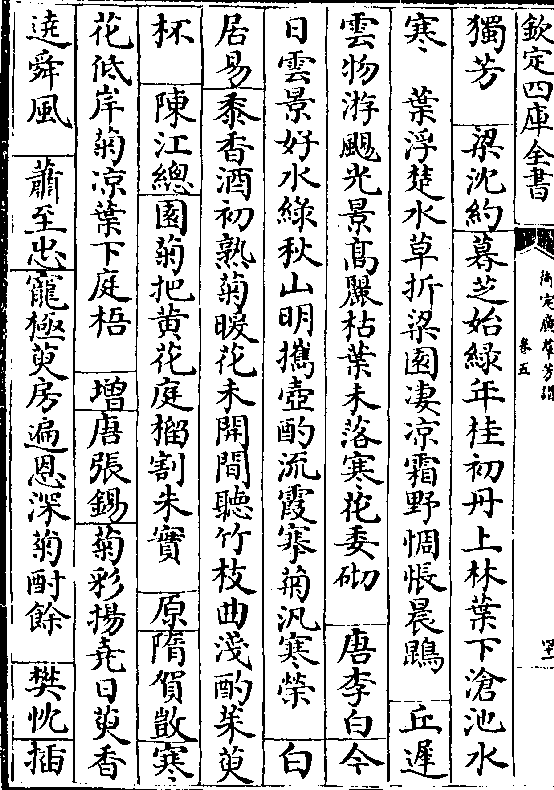 欽定四庫全書
御定廣羣芳譜
卷五
獨芳 梁沈約暮芝始緑年桂初丹上林葉下滄池水
寒 葉浮楚水草折梁園凄凉霜野惆悵晨鵾 丘遲
雲物游颺光景髙麗枯葉未落寒花委砌 唐李白今
日雲景好水緑秋山明攜壺酌流霞搴菊汎寒榮 白
居易黍香酒初熟菊暖花未開閒聽竹枝曲淺酌茱萸
杯 陳江總園菊把黄花庭榴割朱實 原隋賀敳寒
花低岸菊凉葉下庭梧 增唐張錫菊彩揚堯日萸香
遶舜風 蕭至忠寵極萸房遍恩深菊酎餘 樊忱插